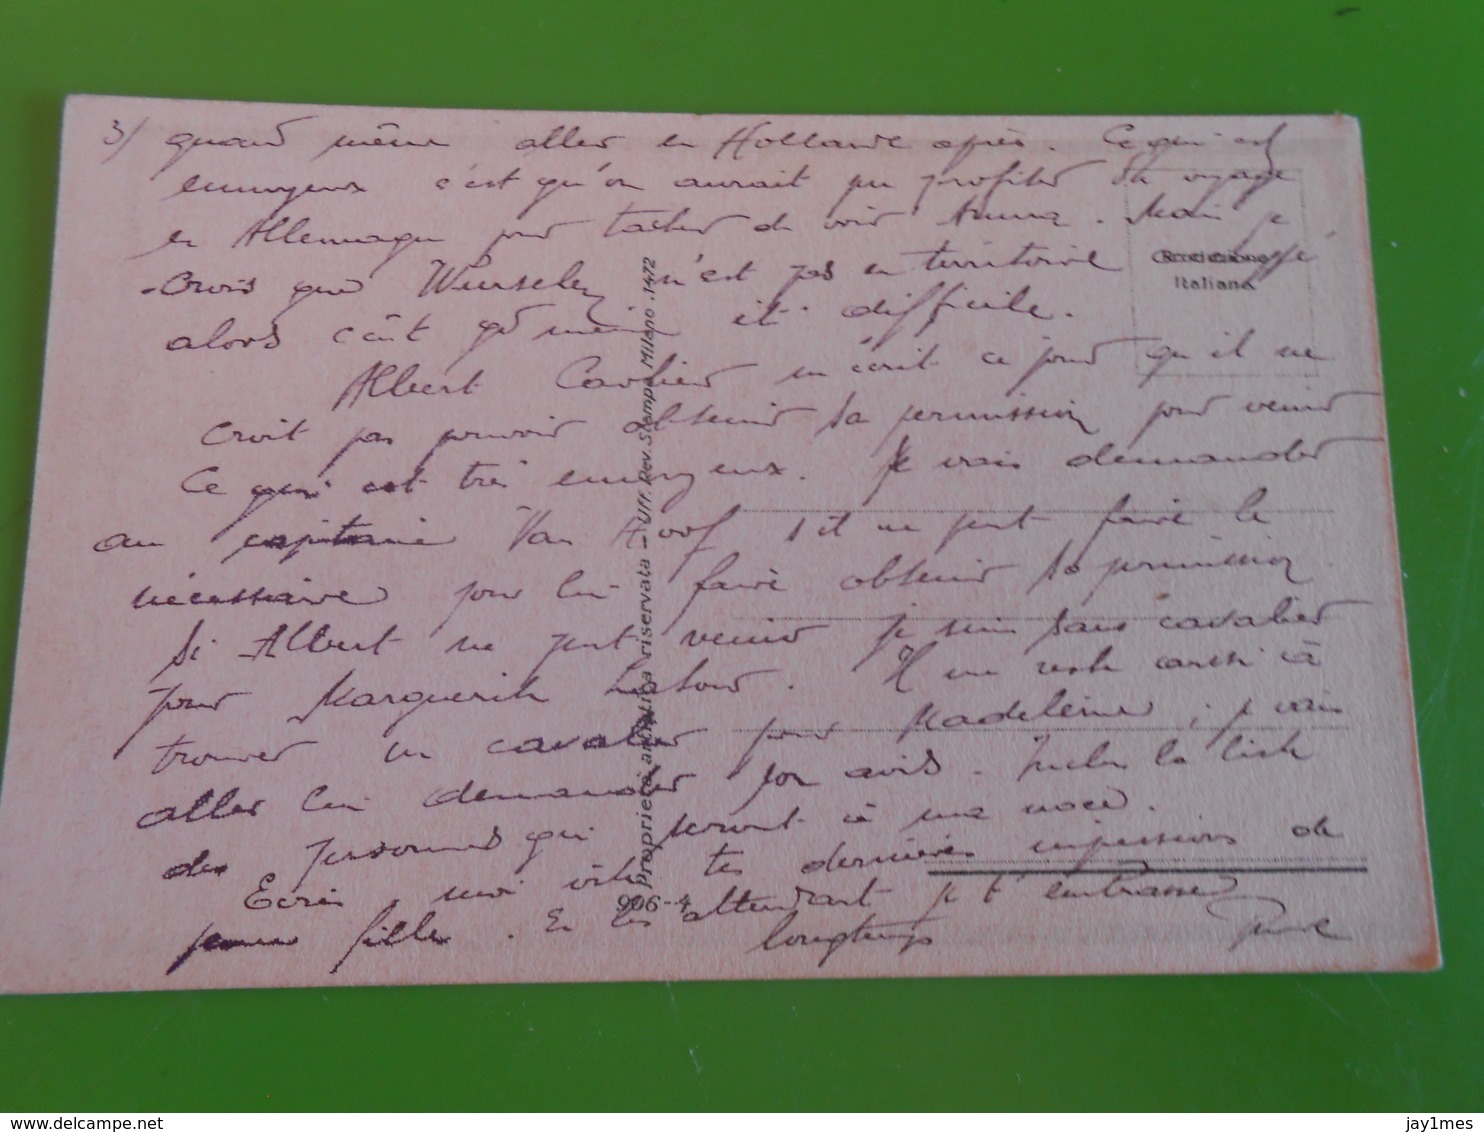 3/ quand même aller en Hollande après. Ce qui est
ennuyeux c'est qu'on aurait pu profiter du voyage
en Allemagne pour tacher de voir Anna. Mais je
crois que n'est pas en territoire occupé
alors c'eût été difficile.
Albert Carlier m'écrit ce jour qu'il ne
croit pas pouvoir obtenir sa permission pour venir
Ce qui est très ennuyeux. Je vais demander
au capitaine Van Hoof s'il ne peut faire le
nécessaire pour lui faire obtenir sa permission.
Si Albert ne peut venir je suis sans cavalier
pour Marguerite. Il me reste aussi à
trouver un cavalier pour Madeleine, je vais
aller lui demander son avis. la liste
des personnes qui seront à ma noce.
Ecris moi vite tes dernières impressions de
jeune fille. En les attendant je t'embrasse
longtemps
Produzione
Italiana
Proprietà artistica riservata – Uff. Rev. Stampa Milano .1472
906-4
delcampe.net
jay1mes